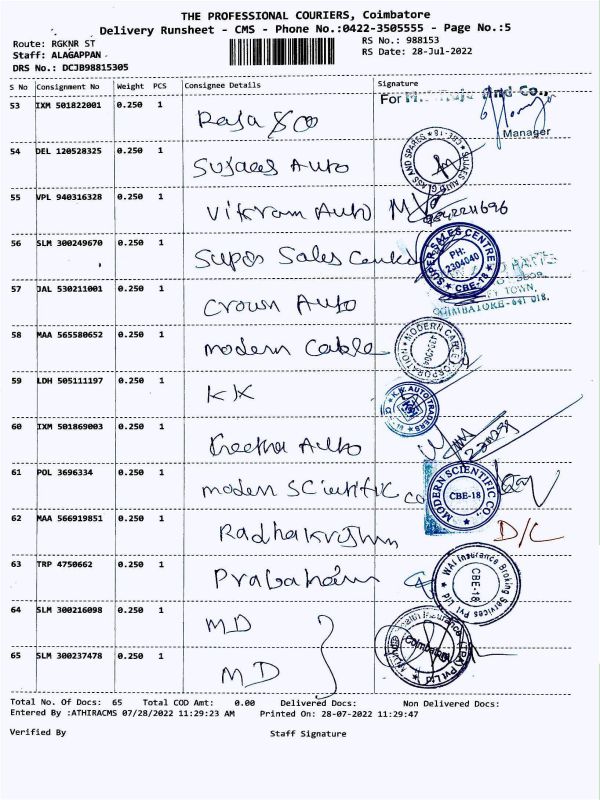 THE PROFESSIONAL COURIERS, Coimbatore
Delivery Runsheet - CMS - Phone No.:0422-3505555 - Page No.:5
Route: RGKNR ST RS No.: 988153
Staff: ALAGAPPAN RS Date: 28-Jul-2022
DRS No.: DCJB98815305
S No Consignment No Weight PCS Consignee Details Signature
53 IXM 501822001 0.250 1 Raja & Co For And Co.,
Manager
54 DEL 120528325 0.250 1 Sujaees Auto
SUJAES AUTO GLASS AND SPARES * CBE-18 *
55 VPL 940316328 0.250 1 Vikram Auto 9842211696
56 SLM 300249670 0.250 1 Super Sales Centre
SUPER SALES CENTRE PH: 2304040 * CBE-18 *
57 JAL 530211001 0.250 1 Crown Auto
PARTS
TOWN,
COIMBATORE-641 018.
58 MAA 565580652 0.250 1 Modern Cable
MODERN CABLE CORPORATION
59 LDH 505111197 0.250 1 KK
K.K. AUTO TRADERS
60 IXM 501869003 0.250 1 Geetha Auto
61 POL 3696334 0.250 1 modern Scientific co
MODERN SCIENTIFIC CO., CBE-18
62 MAA 566919851 0.250 1 Radhakrishn D/C
63 TRP 4750662 0.250 1 Prabaharan
WAI Insurance Broking Services Pvt Ltd CBE-18
64 SLM 300216098 0.250 1 MD
Health Insurance (TPA) Pvt Ltd Coimbatore
65 SLM 300237478 0.250 1 MD
Total No. Of Docs: 65 Total COD Amt: 0.00 Delivered Docs: Non Delivered Docs:
Entered By :ATHIRACMS 07/28/2022 11:29:23 AM Printed On: 28-07-2022 11:29:47
Verified By Staff Signature